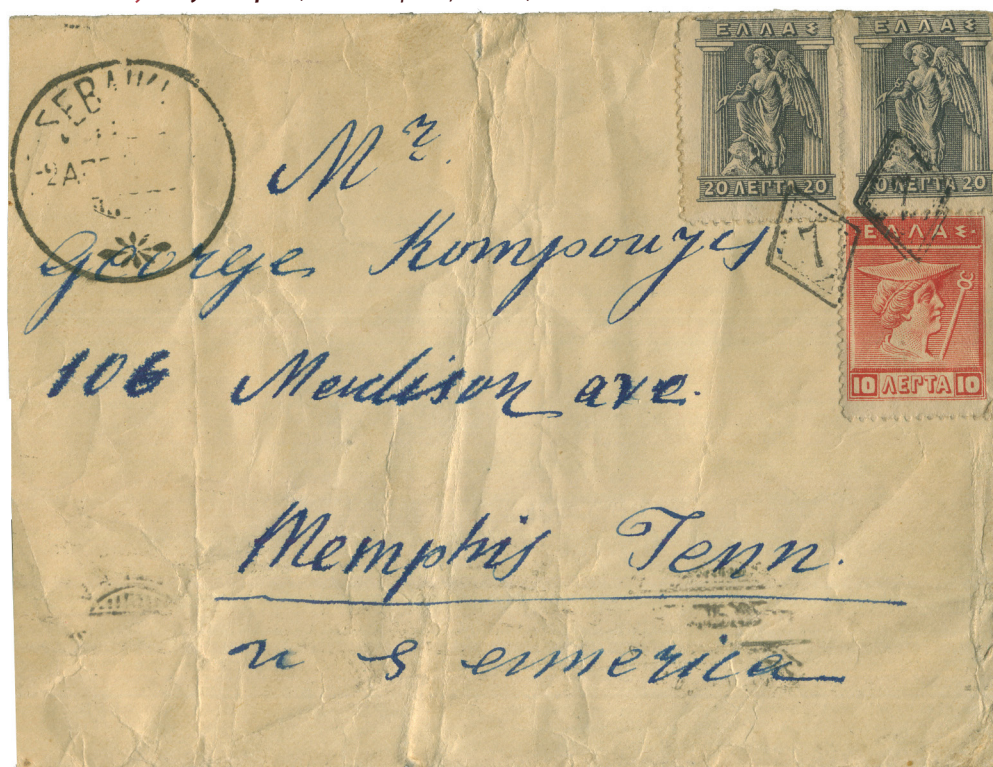 ΕΛΛΑΣ
20 ΛΕΠΤΑ 20
ΕΛΛΑΣ
20 ΛΕΠΤΑ 20
ΕΛΛΑΣ
10 ΛΕΠΤΑ 10
Mr.
George Kompouzes
106 Madison ave.
Memphis Tenn.
u s america